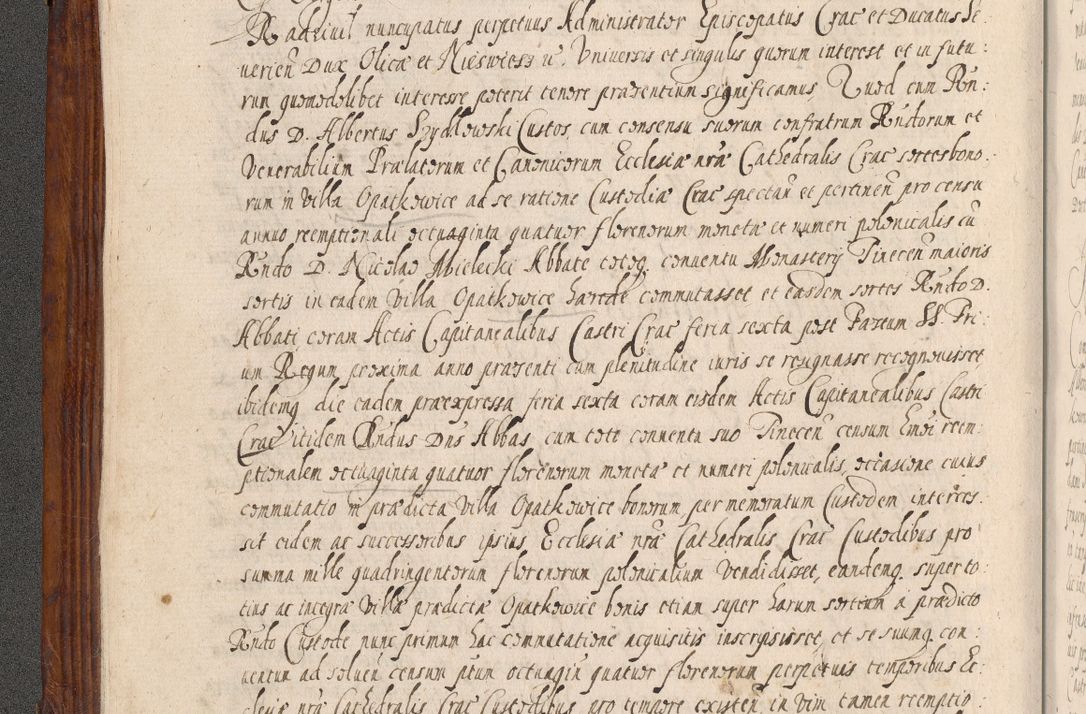 Radziwil nuncupatus perpetuus Administrator Episcopatus Crac et Ducatus Se:
verien Dux Olicæ et Nieswiess &c. Universis et singulis quorum interest et in futu:
rum quomodolibet interesse poterit tenore præsentium significamus, Quod cum Rn:
dus D. Albertus Szydłowski Custos, cum consensu suorum confratrum Rndorum et
Venerabilium Prælatorum et Canonicorum Ecclesiæ nræ Cathedralis Crac sortes bono:
rum in Villa Opatkowice ad se ratione Custodiæ Crac spectan et pertinen pro censu
annuo reemptionali octuaginta quatuor florenorum monetæ et numeri polonicalis cu
Rndo D. Nicolao Mielecki Abbate totoq. conventu Monastery Tinecen maioris
sortis in eadem Villa Opatkowice hærede commutasset et easdem sortes Rndo D.
Abbati coram Actis Capitanealibus Castri Crac feria sexta post Festum SS. Tri:
um Regum proxima anno præsenti cum plenitudine iuris se resignasse recognovisset
ibidemq. die eadem præexpressa feria sexta coram eisdem Actis Capitanealibus Castri
Crac itidem Rndus Dns Abbas, cum toto conventu suo Tinecen censum hmoi reem:
ptionalem octuaginta quatuor florenorum monetæ et numeri polonicalis, occasione cuius
commutatio in prædicta Villa Opatkowice bonorum per memoratum Custodem interces:
sit eidem ac successoribus ipsius Ecclesiæ nræ Cathedralis Crac Custodibus pro
summa mille quadringentorum florenorum polonicalium Vendidisset, eandemq. super to:
tius ac integræ Villæ prædictæ Opatkowice bonis etiam super harum sortium a prædicto
Rndo Custode nunc primum hac commutatione acquisitis inscripsisset, et se suumq. con:
ventum ad solven censum ptum octuagin quatuor florenorum perpetuis temporibus Ec:
clesiæ nræ Cathedralis Crac Custodibus pro tempore existen in Vim tamen reemptio: